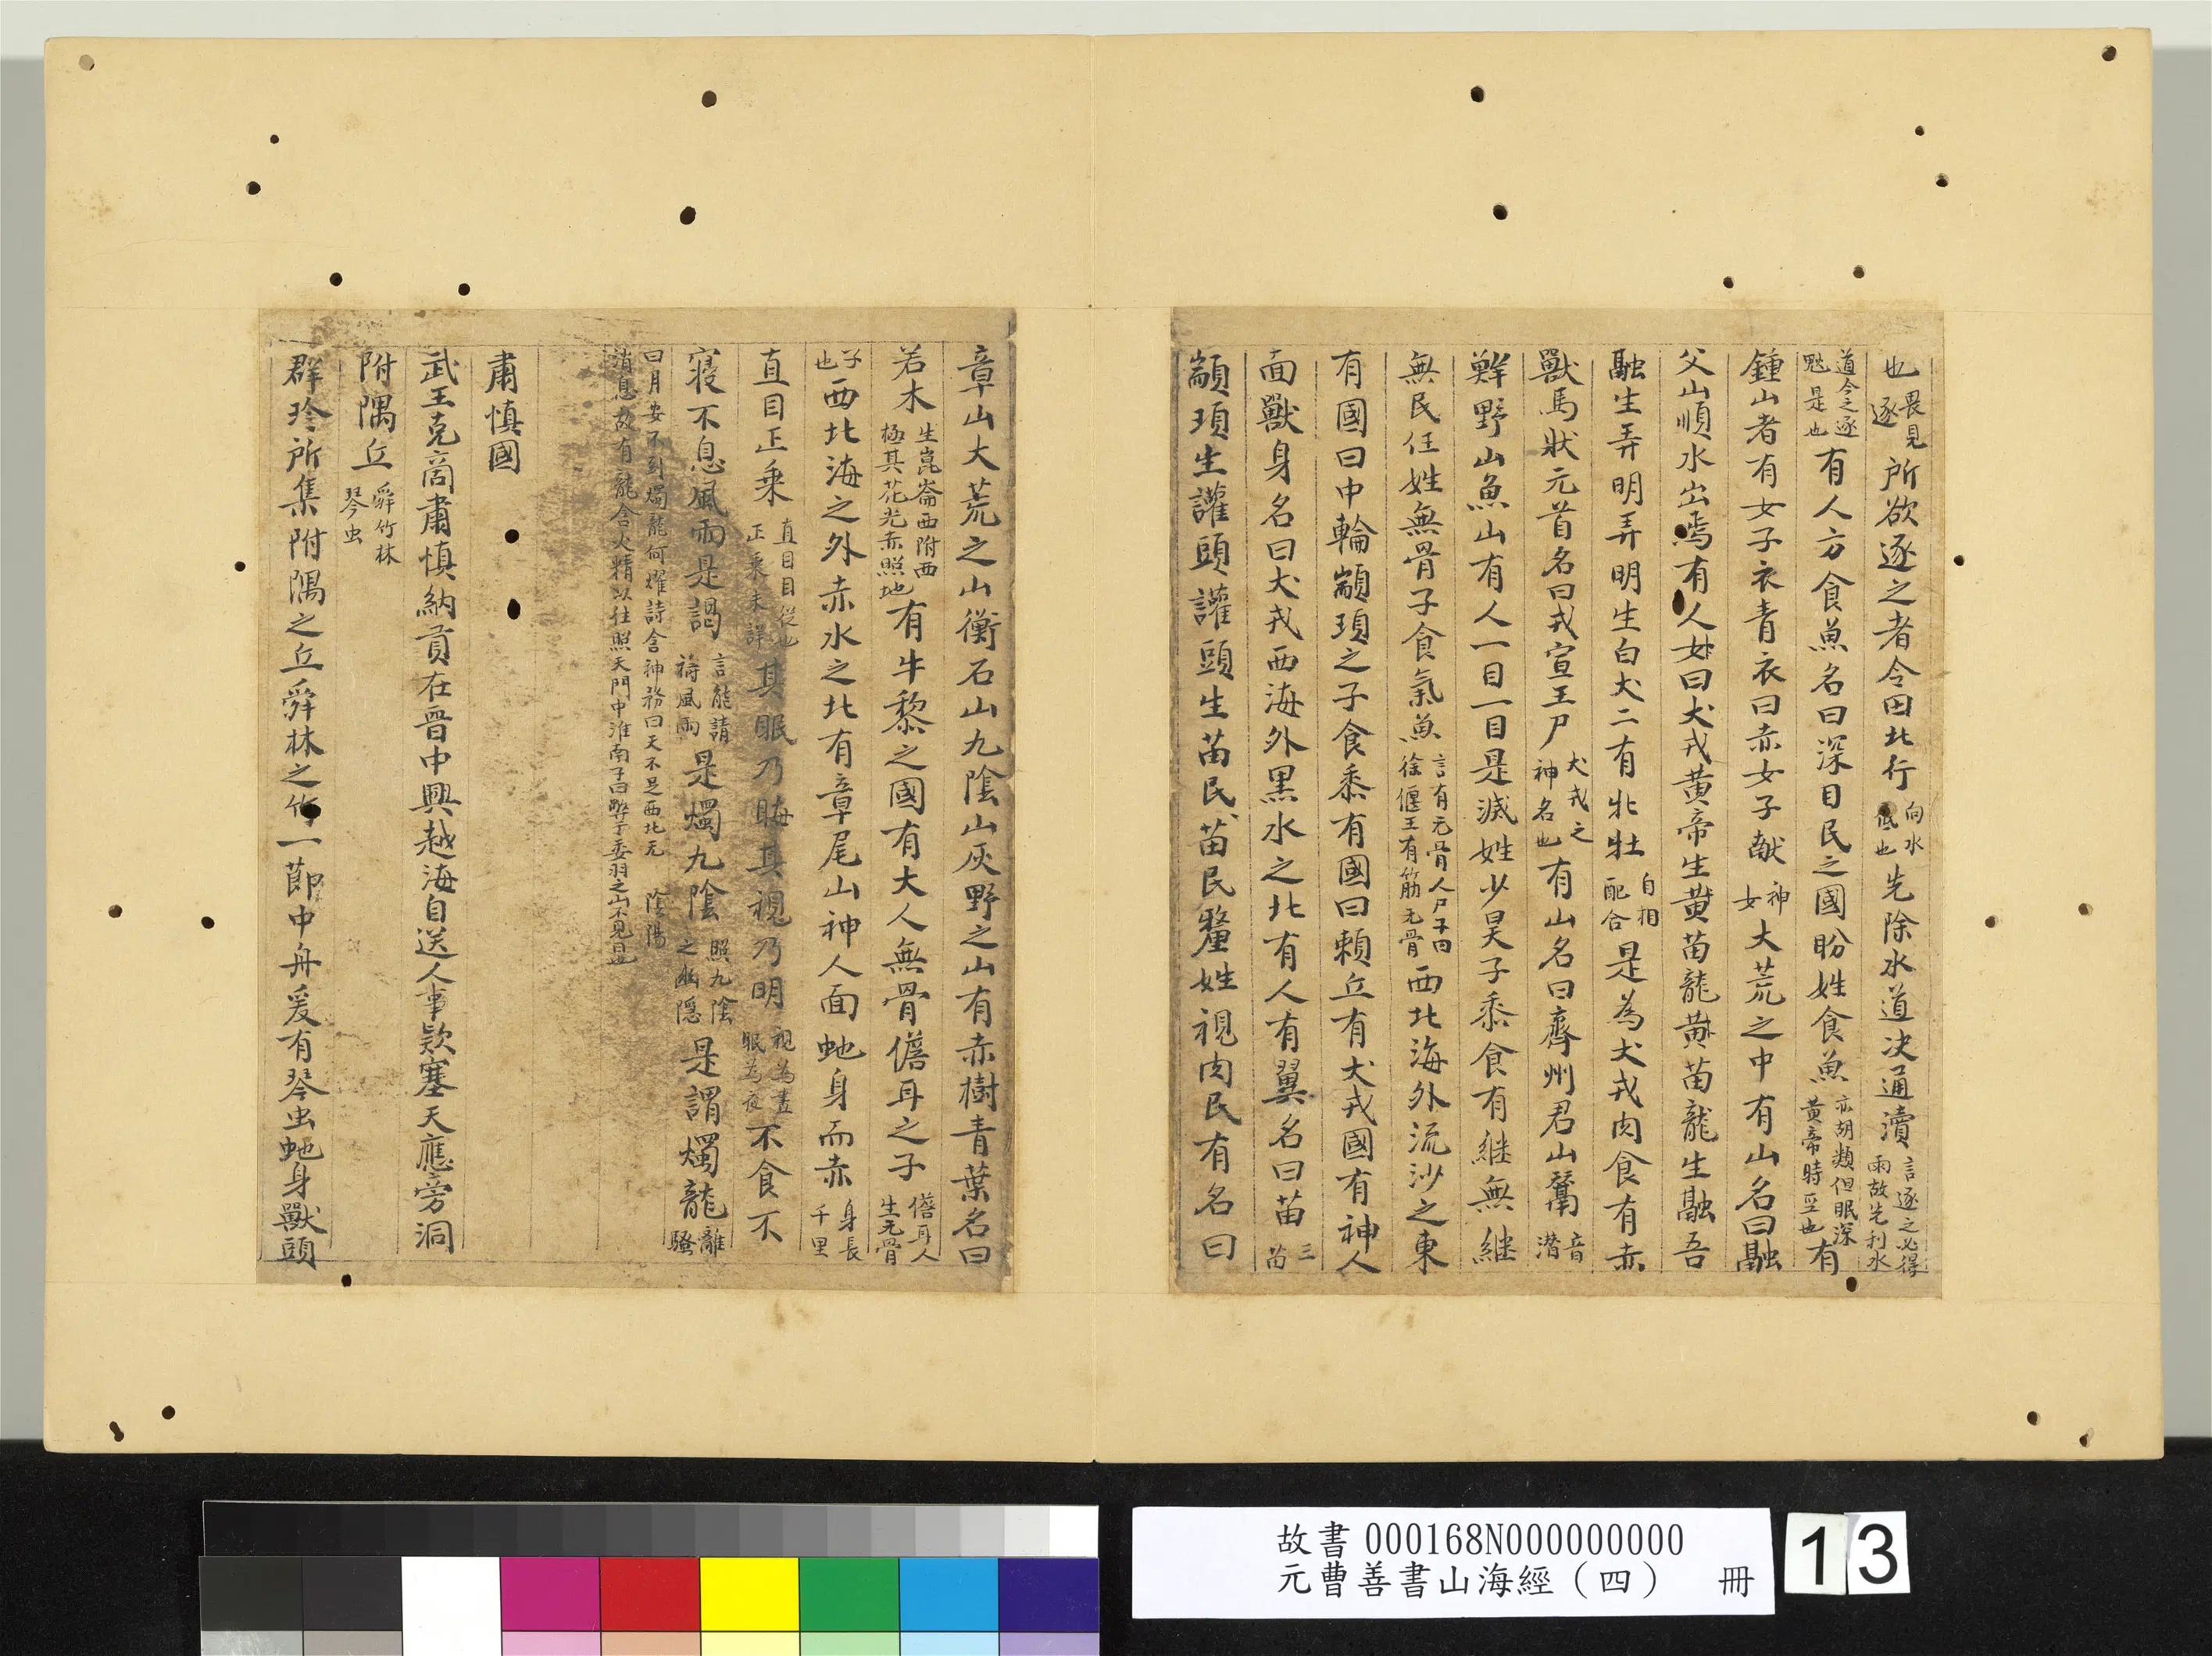 也畏見逐所欲逐之者令曰北行向水低也先除水道决通瀆言逐之必得雨故先利水
道今之逐魃是也有人方食魚名曰深目民之國盼姓食魚亦胡類但眼深黄帝時至也有
鍾山者有女子衣青衣曰赤女子献神女大荒之中有山名曰融
父山順水出焉有人女曰犬戎黄帝生黄苗龍黄苗龍生融吾
融生弄明弄明生白犬二有牝牡自相配合是為犬戎肉食有赤
獸馬狀元首名曰戎宣王尸犬戎之神名也有山名曰齊州君山鬵音潛
鮮野山魚山有人一目一目是滅姓少昊子黍食有継無継
無民任姓無骨子食氣魚言有无骨人尸子曰徐偃王有筋无骨西北海外流沙之東
有國曰中輪顓頊之子食黍有國曰賴丘有犬戎國有神人
面獸身名曰犬戎西海外黑水之北有人有翼名曰苗三苗
顓頊生讙頭讙頭生苗民苗民釐姓視肉民有名曰
章山大荒之山衡石山九陰山灰野之山有赤樹青葉名曰
若木生崑崙西附西極其花光赤照地有牛黎之國有大人無骨儋耳之子儋耳人生无骨
子也西北海之外赤水之北有章尾山神人面虵身而赤身長千里
直目正乗直目目從也正乗未詳其眠乃晦其視乃明視為晝眠為夜不食不
寢不息風雨是謁言能請禱風雨是燭九陰照九陰之幽隱是謂燭龍離騷
曰日安不到燭龍何燿詩含神務曰天不足西北无陰陽
消息故有龍含火精以往照天門中淮南子曰蔽于委羽之山不見日也
肅慎國
武王克商肅慎納貢在晋中興越海自送人事欵塞天應旁洞
附隅丘舜竹林琴虫
群珍所集附隅之丘舜林之竹一節中舟爰有琴虫虵身獸頭
故書000168N000000000
元曹善書山海經（四） 冊
13